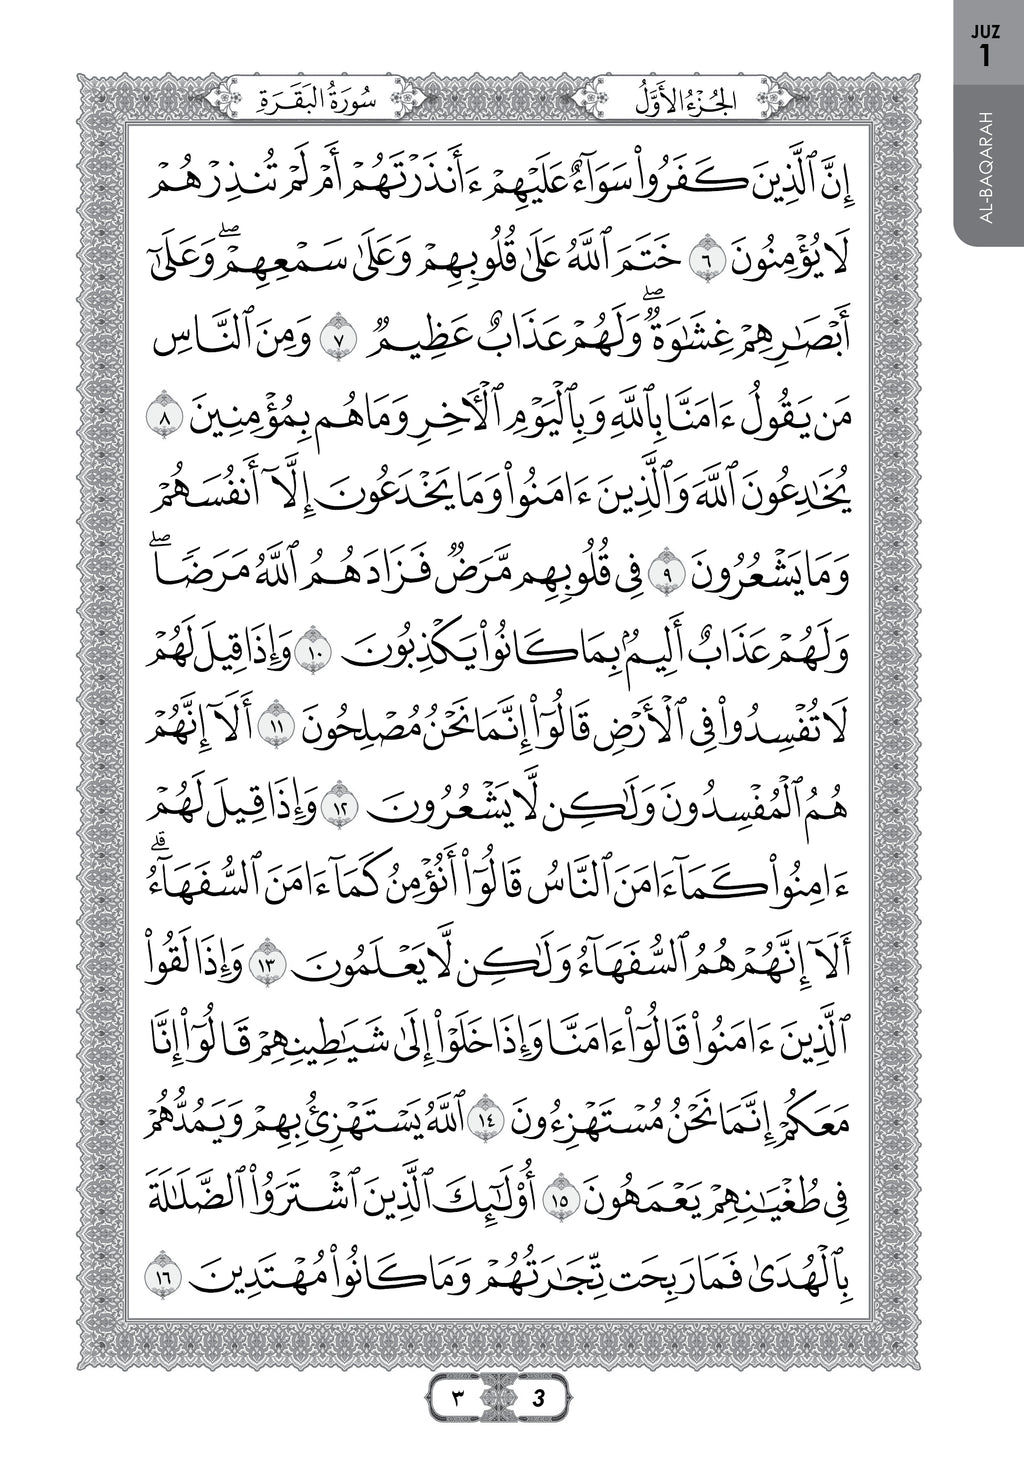 JUZ
1
AL-BAQARAH
الجُزْءُ الأَوَّلُ
سُورَةُ البَقَرَةِ
إِنَّ ٱلَّذِينَ كَفَرُواْ سَوَآءٌ عَلَيْهِمْ ءَأَنذَرْتَهُمْ أَمْ لَمْ تُنذِرْهُمْ
لَا يُؤْمِنُونَ ٦ خَتَمَ ٱللَّهُ عَلَىٰ قُلُوبِهِمْ وَعَلَىٰ سَمْعِهِمْۖ وَعَلَىٰٓ
أَبْصَٰرِهِمْ غِشَٰوَةٌۖ وَلَهُمْ عَذَابٌ عَظِيمٌ ٧ وَمِنَ ٱلنَّاسِ
مَن يَقُولُ ءَامَنَّا بِٱللَّهِ وَبِٱلْيَوْمِ ٱلْأٓخِرِ وَمَا هُم بِمُؤْمِنِينَ ٨
يُخَٰدِعُونَ ٱللَّهَ وَٱلَّذِينَ ءَامَنُواْ وَمَا يَخْدَعُونَ إِلَّآ أَنفُسَهُمْ
وَمَا يَشْعُرُونَ ٩ فِى قُلُوبِهِم مَّرَضٌ فَزَادَهُمُ ٱللَّهُ مَرَضًاۖ
وَلَهُمْ عَذَابٌ أَلِيمٌۢ بِمَا كَانُواْ يَكْذِبُونَ ١٠ وَإِذَا قِيلَ لَهُمْ
لَا تُفْسِدُواْ فِى ٱلْأَرْضِ قَالُوٓاْ إِنَّمَا نَحْنُ مُصْلِحُونَ ١١ أَلَآ إِنَّهُمْ
هُمُ ٱلْمُفْسِدُونَ وَلَٰكِن لَّا يَشْعُرُونَ ١٢ وَإِذَا قِيلَ لَهُمْ
ءَامِنُواْ كَمَآ ءَامَنَ ٱلنَّاسُ قَالُوٓاْ أَنُؤْمِنُ كَمَآ ءَامَنَ ٱلسُّفَهَآءُۗ
أَلَآ إِنَّهُمْ هُمُ ٱلسُّفَهَآءُ وَلَٰكِن لَّا يَعْلَمُونَ ١٣ وَإِذَا لَقُواْ
ٱلَّذِينَ ءَامَنُواْ قَالُوٓاْ ءَامَنَّا وَإِذَا خَلَوْاْ إِلَىٰ شَيَٰطِينِهِمْ قَالُوٓاْ إِنَّا
مَعَكُمْ إِنَّمَا نَحْنُ مُسْتَهْزِءُونَ ١٤ ٱللَّهُ يَسْتَهْزِئُ بِهِمْ وَيَمُدُّهُمْ
فِى طُغْيَٰنِهِمْ يَعْمَهُونَ ١٥ أُوْلَٰٓئِكَ ٱلَّذِينَ ٱشْتَرَوُاْ ٱلضَّلَٰلَةَ
بِٱلْهُدَىٰ فَمَا رَبِحَت تِّجَٰرَتُهُمْ وَمَا كَانُواْ مُهْتَدِينَ ١٦
٣ 3